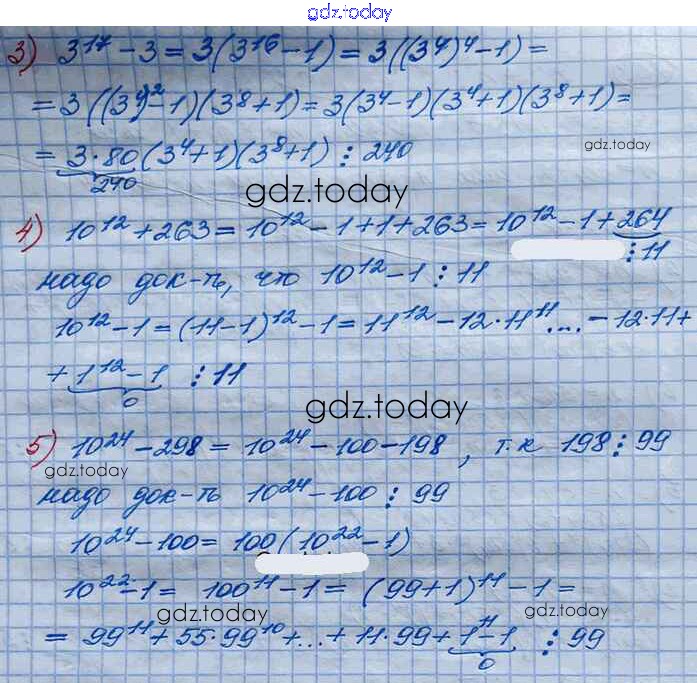 gdz.today
3) 3¹⁷ - 3 = 3(3¹⁶ - 1) = 3((3⁴)⁴ - 1) =
= 3((3⁴)² - 1)(3⁸ + 1) = 3(3⁴ - 1)(3⁴ + 1)(3⁸ + 1) =
gdz.today
= 3·80(3⁴ + 1)(3⁸ + 1) ⋮ 240
240
gdz.today
4) 10¹² + 263 = 10¹² - 1 + 1 + 263 = 10¹² - 1 + 264
⋮ 11
надо док-ть, что 10¹² - 1 ⋮ 11
10¹² - 1 = (11 - 1)¹² - 1 = 11¹² - 12·11¹¹ ... - 12·11 +
+ 1¹² - 1 ⋮ 11
0
gdz.today
5) 10²⁴ - 298 = 10²⁴ - 100 - 198, т.к 198 ⋮ 99
gdz.today
надо док-ть 10²⁴ - 100 ⋮ 99
10²⁴ - 100 = 100(10²² - 1)
10²² - 1 = 100¹¹ - 1 = (99 + 1)¹¹ - 1 =
gdz.today gdz.today
= 99¹¹ + 55·99¹⁰ + ... + 11·99 + 1¹¹ - 1 ⋮ 99
0